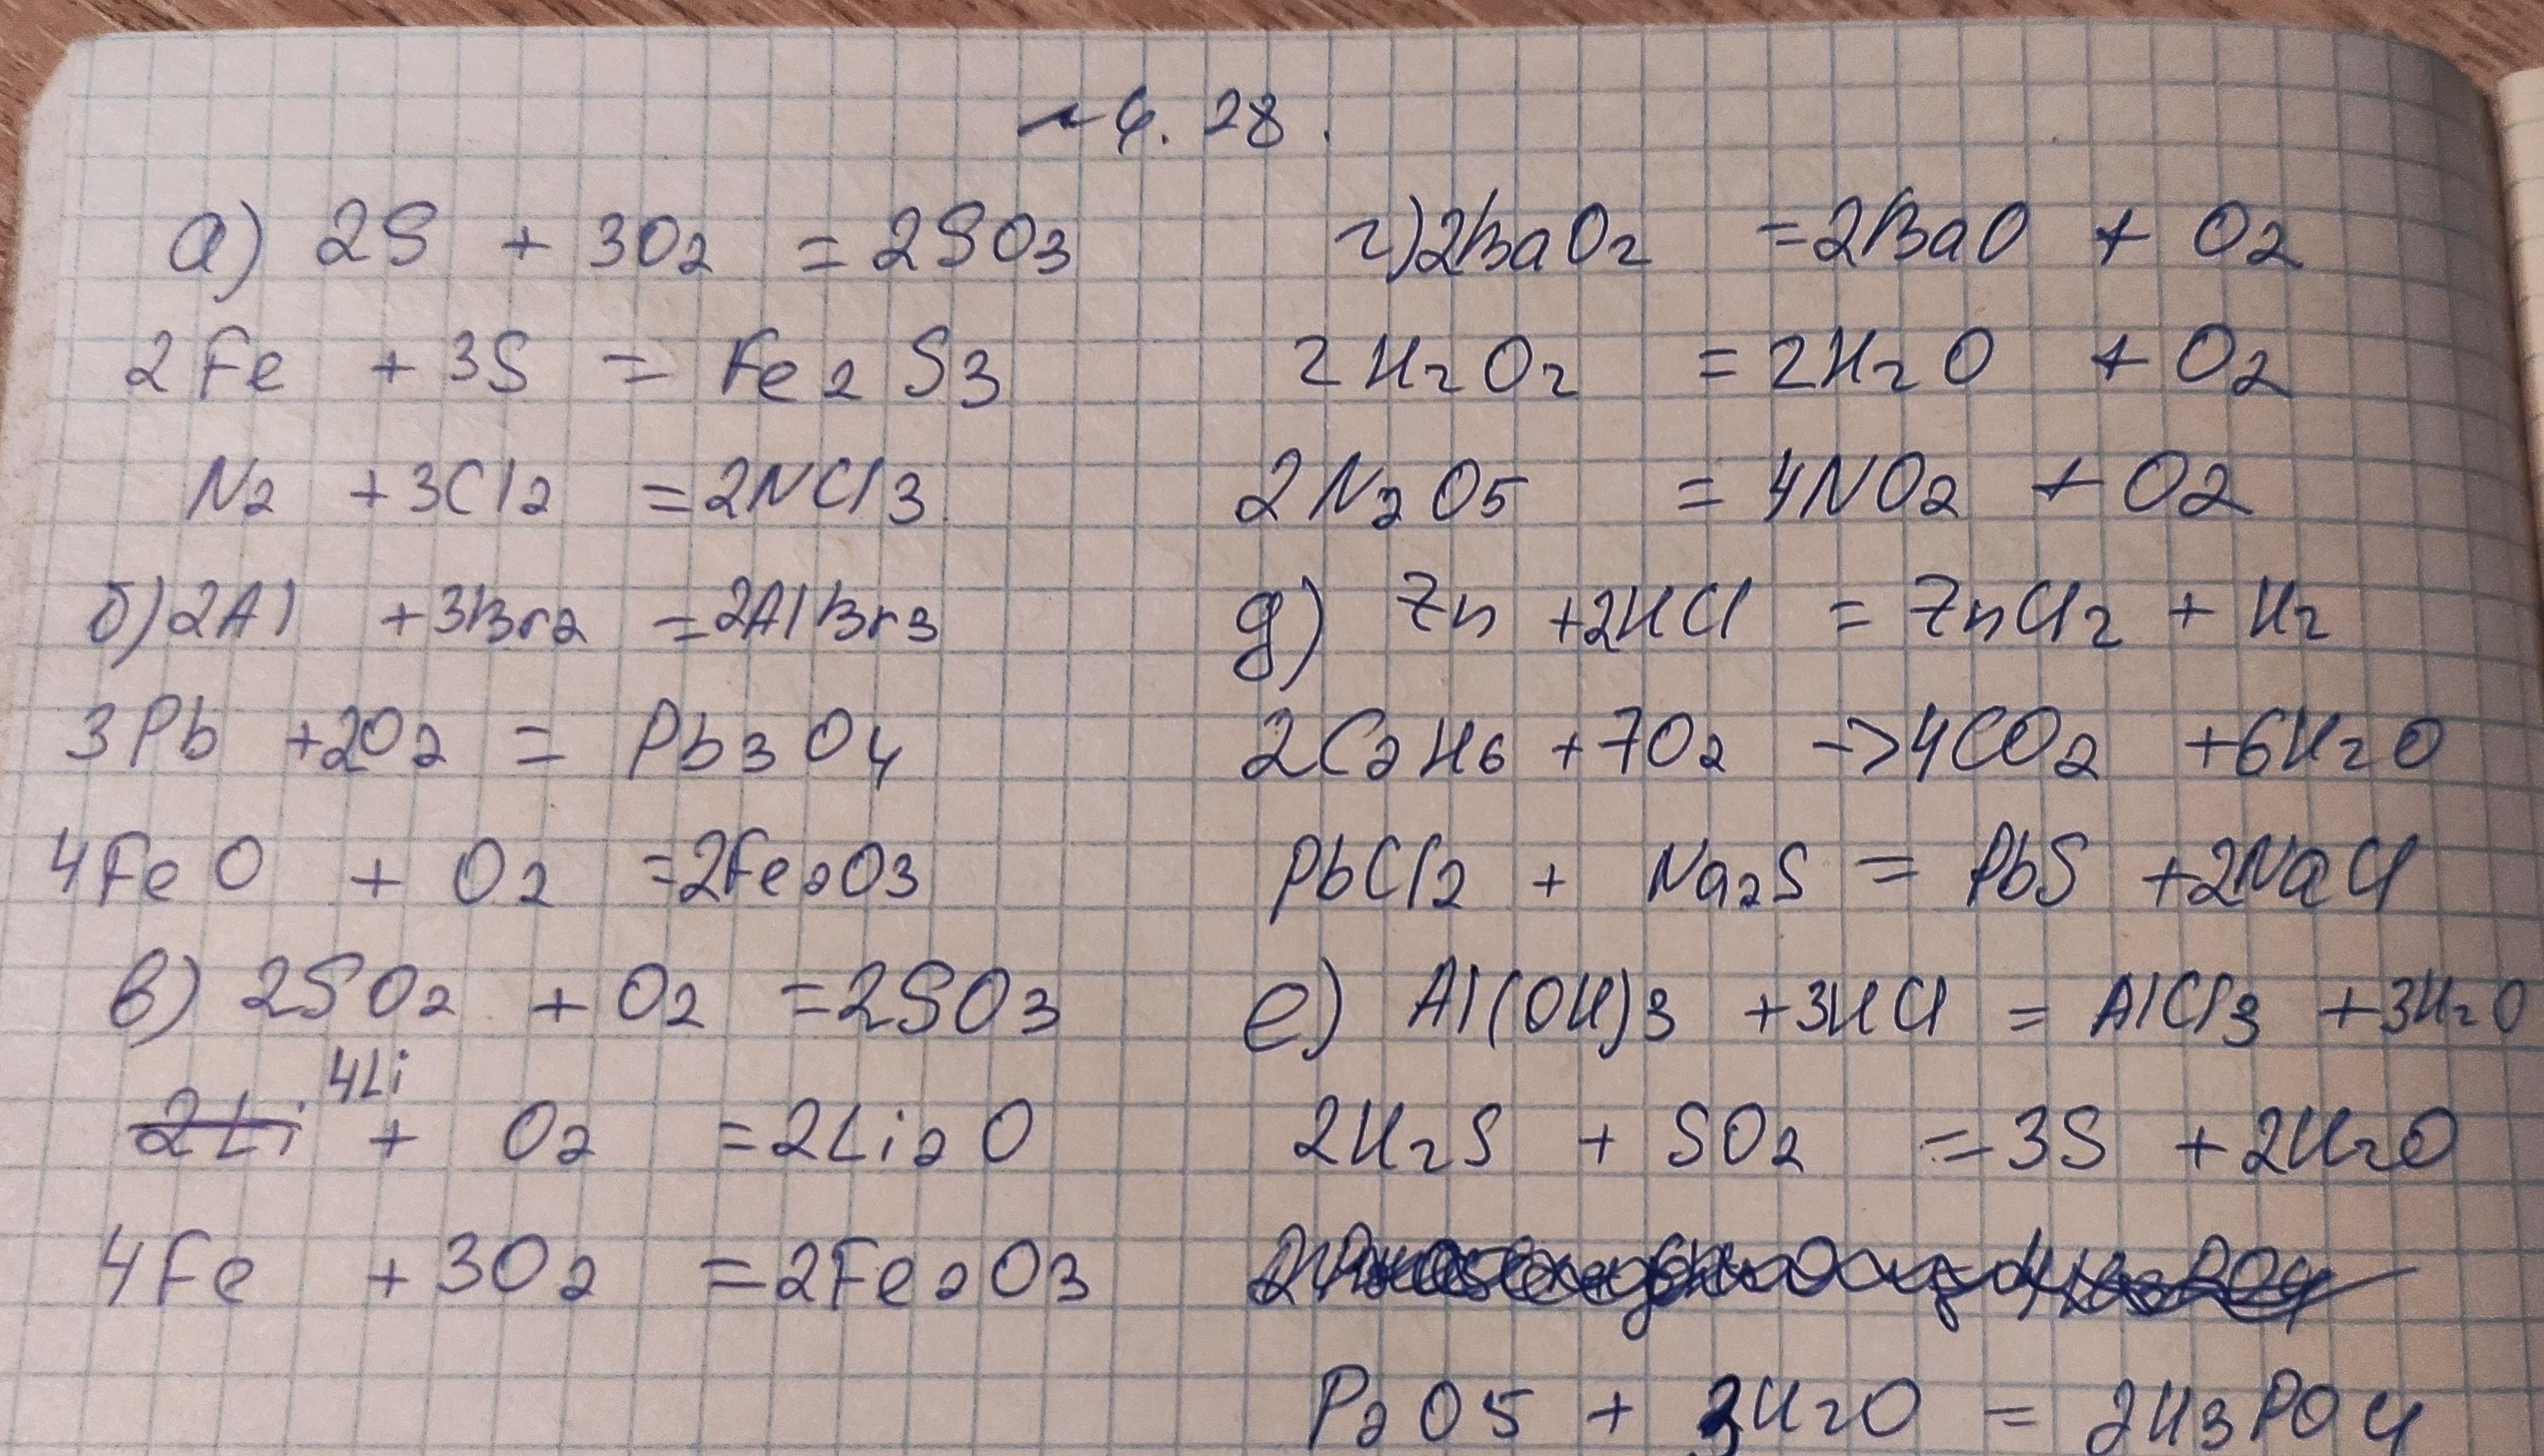 № 6.28.
а) 2S + 3O2 = 2SO3
2Fe + 3S = Fe2S3
N2 + 3Cl2 = 2NCl3
б) 2Al + 3Br2 = 2AlBr3
3Pb + 2O2 = Pb3O4
4FeO + O2 = 2Fe2O3
в) 2SO2 + O2 = 2SO3
4Li
2Li + O2 = 2Li2O
4Fe + 3O2 = 2Fe2O3
г) 2BaO2 = 2BaO + O2
2H2O2 = 2H2O + O2
2N2O5 = 4NO2 + O2
д) Zn + 2HCl = ZnCl2 + H2
2C2H6 + 7O2 -> 4CO2 + 6H2O
PbCl2 + Na2S = PbS + 2NaCl
е) Al(OH)3 + 3HCl = AlCl3 + 3H2O
2H2S + SO2 = 3S + 2H2O
P2O5 + 3H2O = 2H3PO4